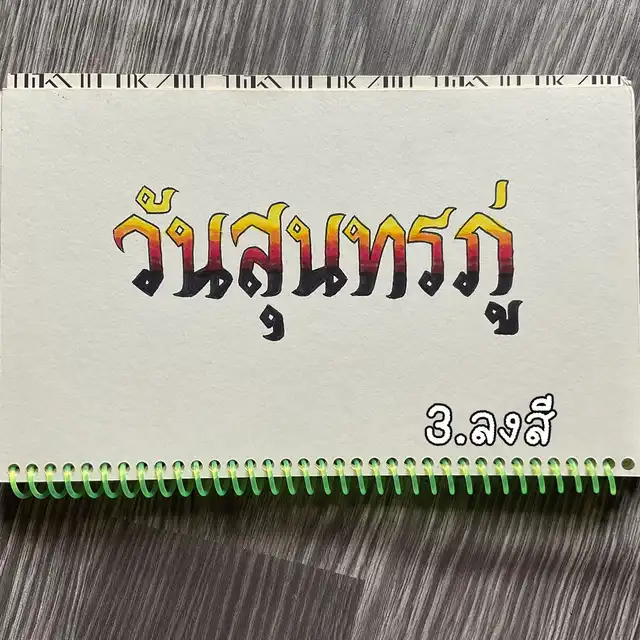 วันสุนทรภู่
3.ลงสี